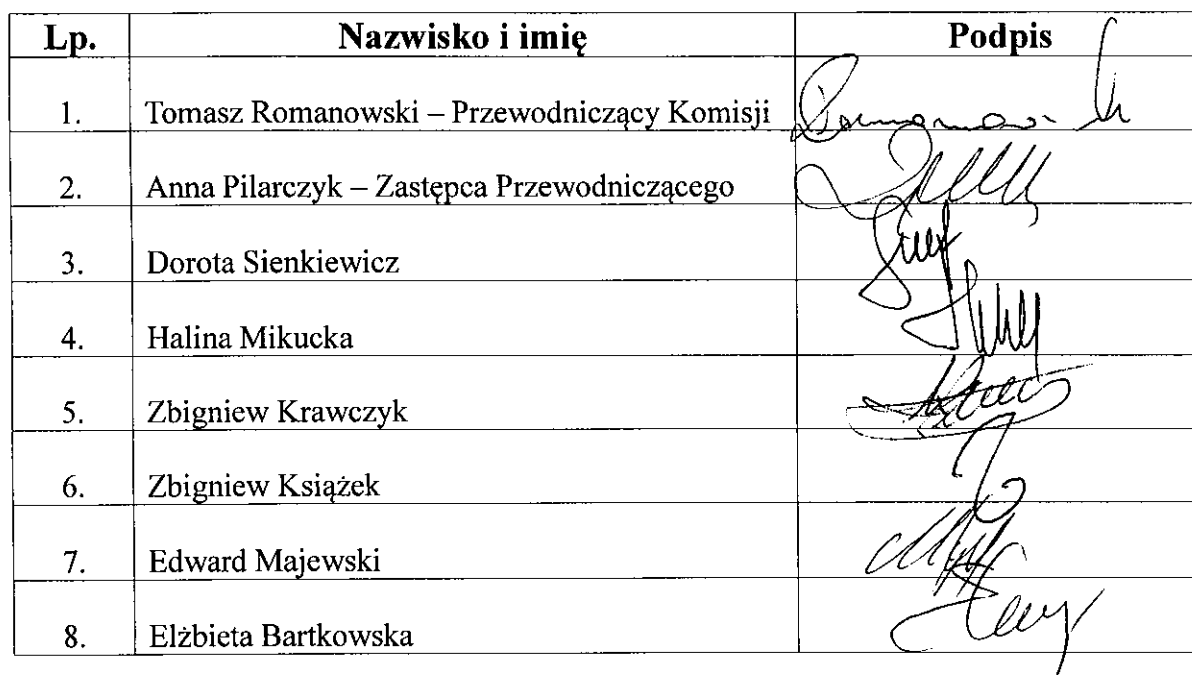 Lp. Nazwisko i imię Podpis
1. Tomasz Romanowski – Przewodniczący Komisji
2. Anna Pilarczyk – Zastępca Przewodniczącego
3. Dorota Sienkiewicz
4. Halina Mikucka
5. Zbigniew Krawczyk
6. Zbigniew Książek
7. Edward Majewski
8. Elżbieta Bartkowska